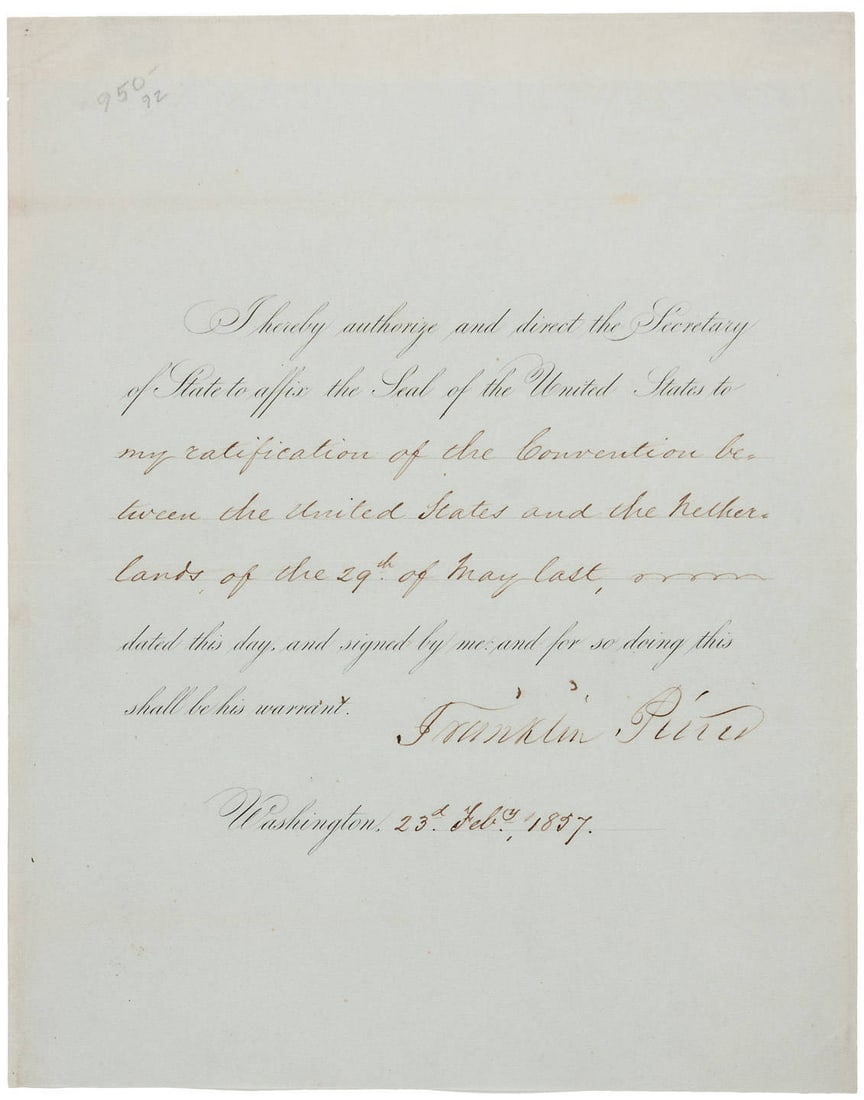 950-
92
I hereby authorize and direct the Secretary
of State to affix the Seal of the United States to
my ratification of the Convention be-
tween the United States and the Nether-
lands, of the 29th. of May last,
dated this day, and signed by me: and for so doing this
shall be his warrant.
Franklin Pierce
Washington, 23d. Feby., 1857.